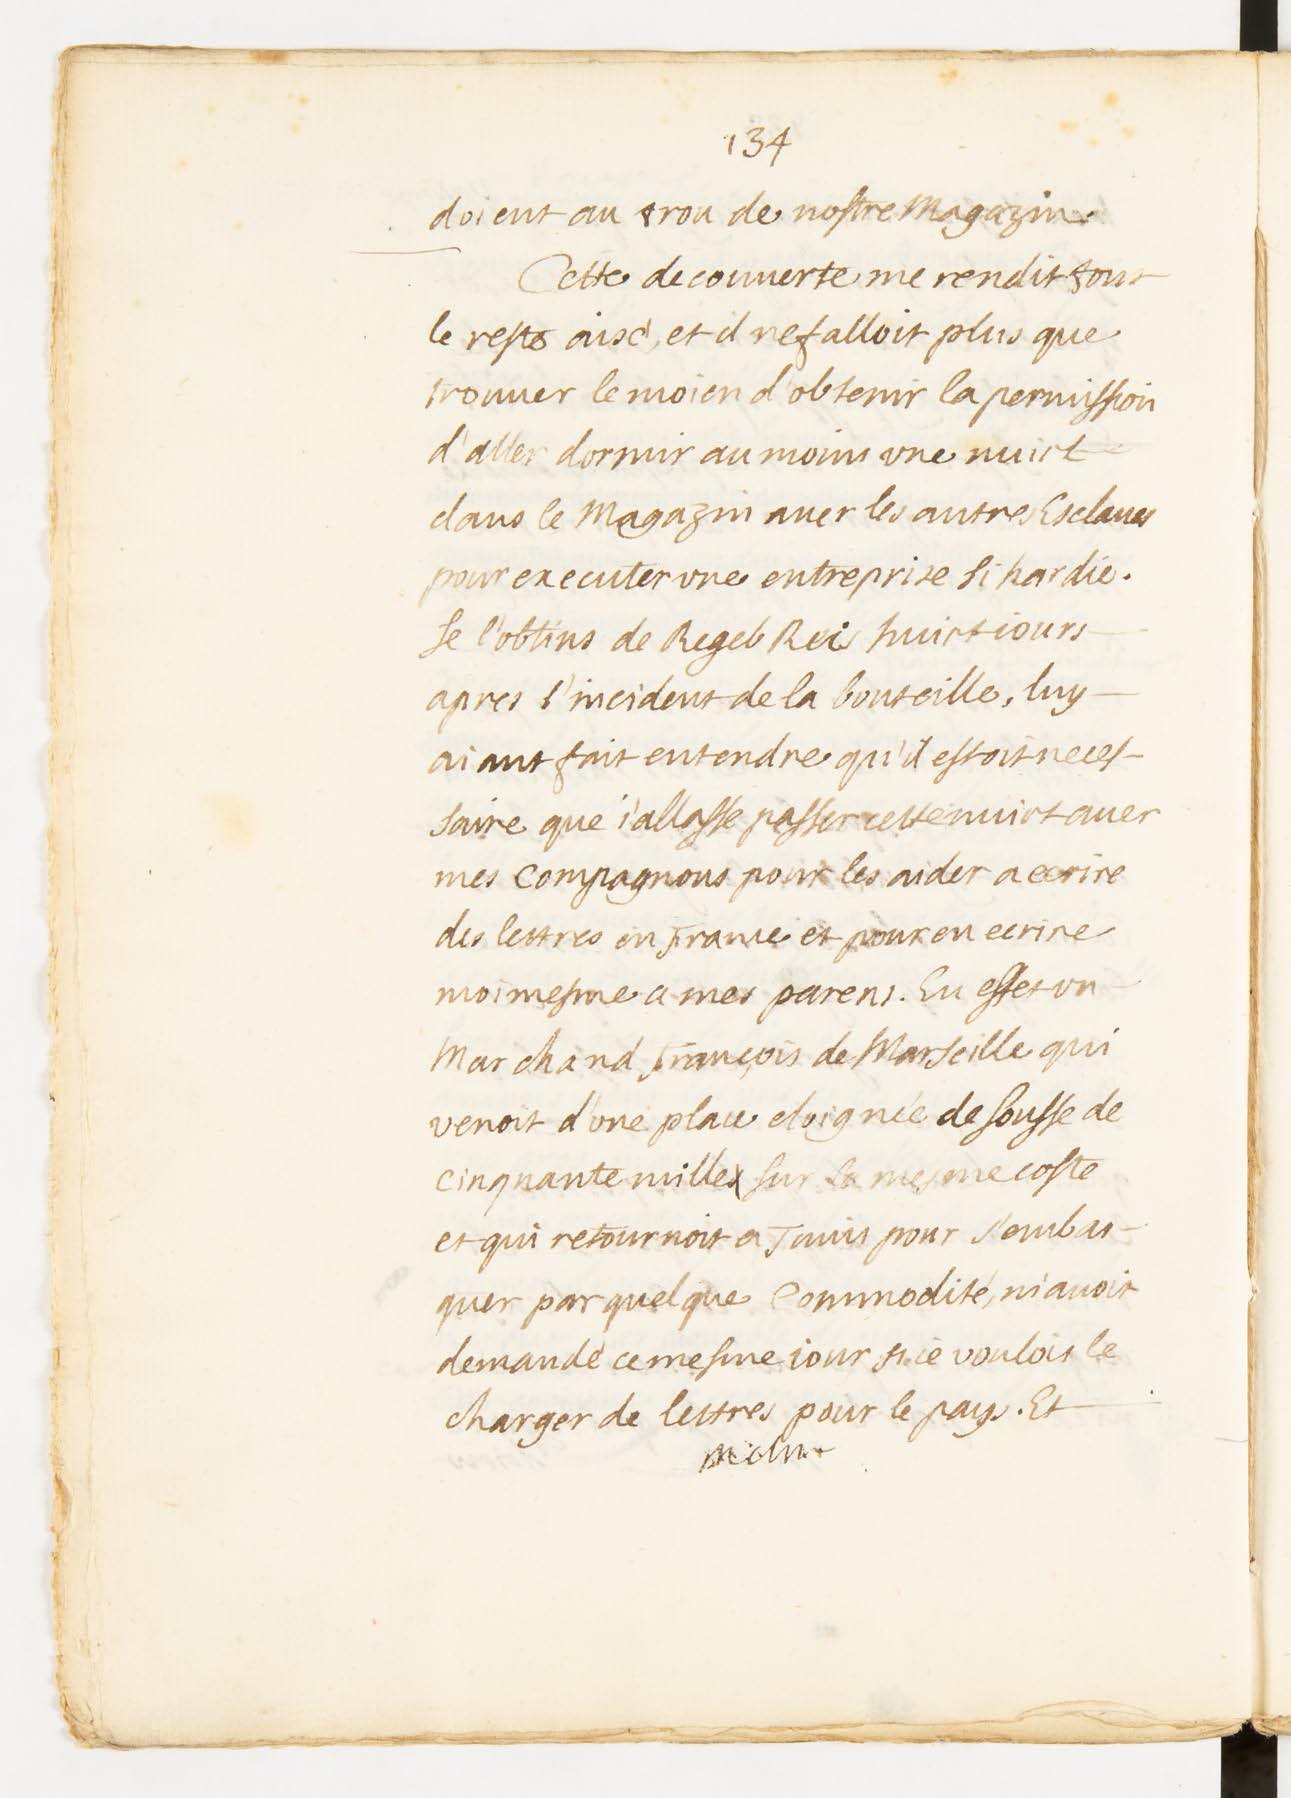 134
doient au trou de nostre Magazin.
Cette decouuerte me rendit tout
le reste aisé, et il ne falloit plus que
trouuer le moien d'obtenir la permission
d'aller dormir au moins vne nuict
dans le Magazin auec les autres Esclaues
pour executer vne entreprise si hardie.
Je l'obtins de Regeb Rei huict iours
apres l'incident de la bouteille, luy
aiant fait entendre qu'il estoit neces-
saire que i'allasse passer cette nuict auec
mes Compagnons pour les aider a ecrire
des lettres en france et pour en ecrire
moi mesme a mes parens. En effet vn
Marchand françois de Marseille qui
venoit d'vne place eloignée de Sousse de
cinquante milles sur la mesme coste
et qui retournoit a Tunis pour s'embar-
quer par quelque Commodité, m'auoit
demandé ce mesme iour si ie voulois le
charger de lettres pour le pays. Et